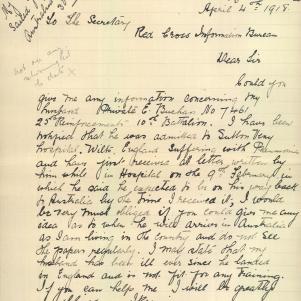 April 4th 1918
To The Secretary
Red Cross Information Bureau
Dear Sir
Could you
give me any information concerning my
husband Private E. Buchan No 7461
25th Reinforcements 10th Battalion. I have been
notified that he was admitted to Sutton Very
hospital. Wilts. England suffering with Pneumonia
and have just received a letter written by
him while in Hospital on the 9th February in
which he said he expected to be on his way back
to Australia by the time I received it, I would
be very much obliged if you could give me any
idea as to when he will arrive in Australia
as I am living in the country and do not see
the papers regularly. I may state that my
husband has been ill ever since he landed
in England and is not fit for any training.
If you can help me I will be greatly